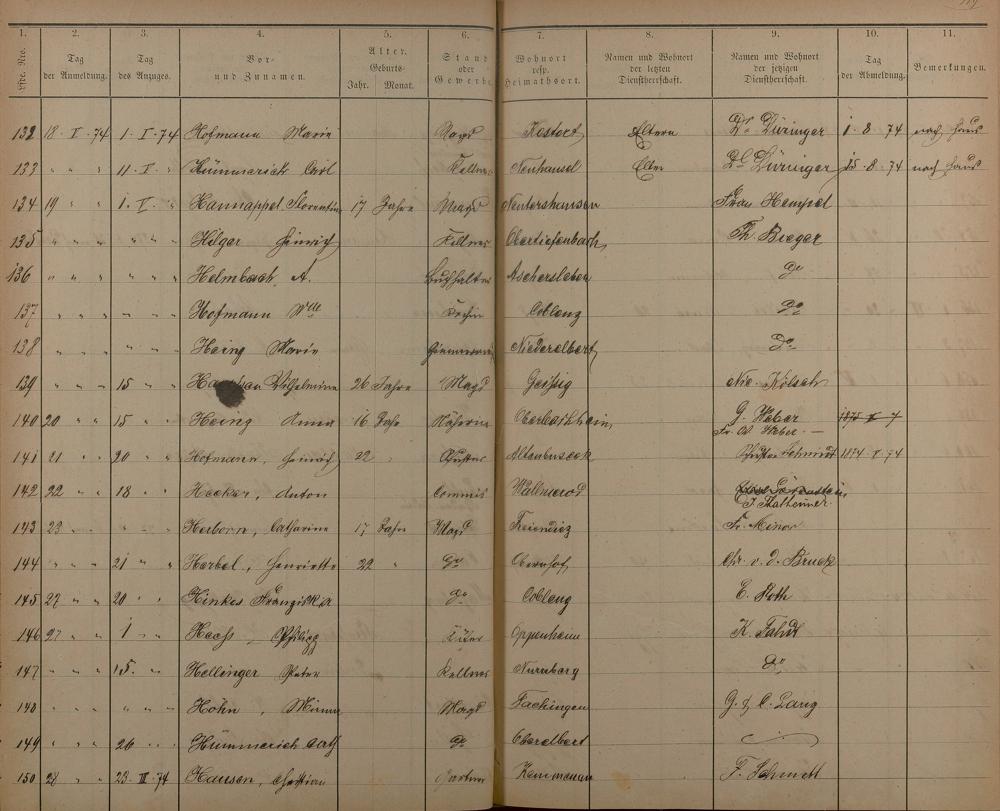 1. 2. 3. 4. 5. 6. 7. 8. 9. 10. 11.
Lfde. Nro. Tag der Anmeldung. Tag des Anzuges. Vor- und Zunamen. Alter. Geburts- Jahr. Monat. Stand oder Gewerbe Wohnort resp. Heimathsort. Namen und Wohnort der letzten Dienstherrschaft. Namen und Wohnort der jetzigen Dienstherrschaft. Tag der Abmeldung. Bemerkungen.
132 18 · V · 74 1 · V · 74 Hofmann Marie Magd Eltern Dr Düringer 1 · 8 · 74 nach Haus
133 " " " 11 · V · " Hümmerich Carl Kellner Neuhäusel Eltern Dr Düringer 15 · 8 · 74 nach Haus
134 19 " " 1. V. " Hannappel Florentine 17 Jahre Magd Nentershausen Frau Hempel
135 " " " " " " Hilger Heinrich Kellner Obertiefenbach Th. Bieger
136 " " " " " " Helmbach, A. Buchhalter Aschersleben do
137 " " " " " " Hofmann Wlle Köchin Coblenz do
138 " " " " " " Heinz Marie Niederelbert do
139 " " " 15 " " Wilhelmine 26 Jahre Magd Nic. Kölsch
140 20 " " 15 " " Heinz Anna 16 Jahr Näherin G. Weber
Fr. Weber
141 21 " " 20 " " Hofmann, Heinrich 22 " Altenbuseck Schmidt 1874 · V · 74
142 22 " " 18 " " Hecker, Anton Commis Wallmerod
143 23 " " " " " Herborn, Catharine 17 Jahr Magd Freiendiez Fr. Minor
144 " " " 21 " " Herbel, Henriette 22 " do Obernhof Chr. v. d. Bruck
145 27 " " 20 " " Hinkes Franziska do Coblenz E. Roth
146 27 " " 1 " " Philipp Küfer Oppenheim
147 " " " 15. " " Hellinger Peter Kellner Nürnberg do
148 " " " " " " Höhn, Minna Magd Fachingen G. & C. Lang
149 " " " 26 " " Hümmerich Cath do Oberelbert
150 28 " " 23 · III · 74 Hausen, Christian Gärtner F. Schmitt